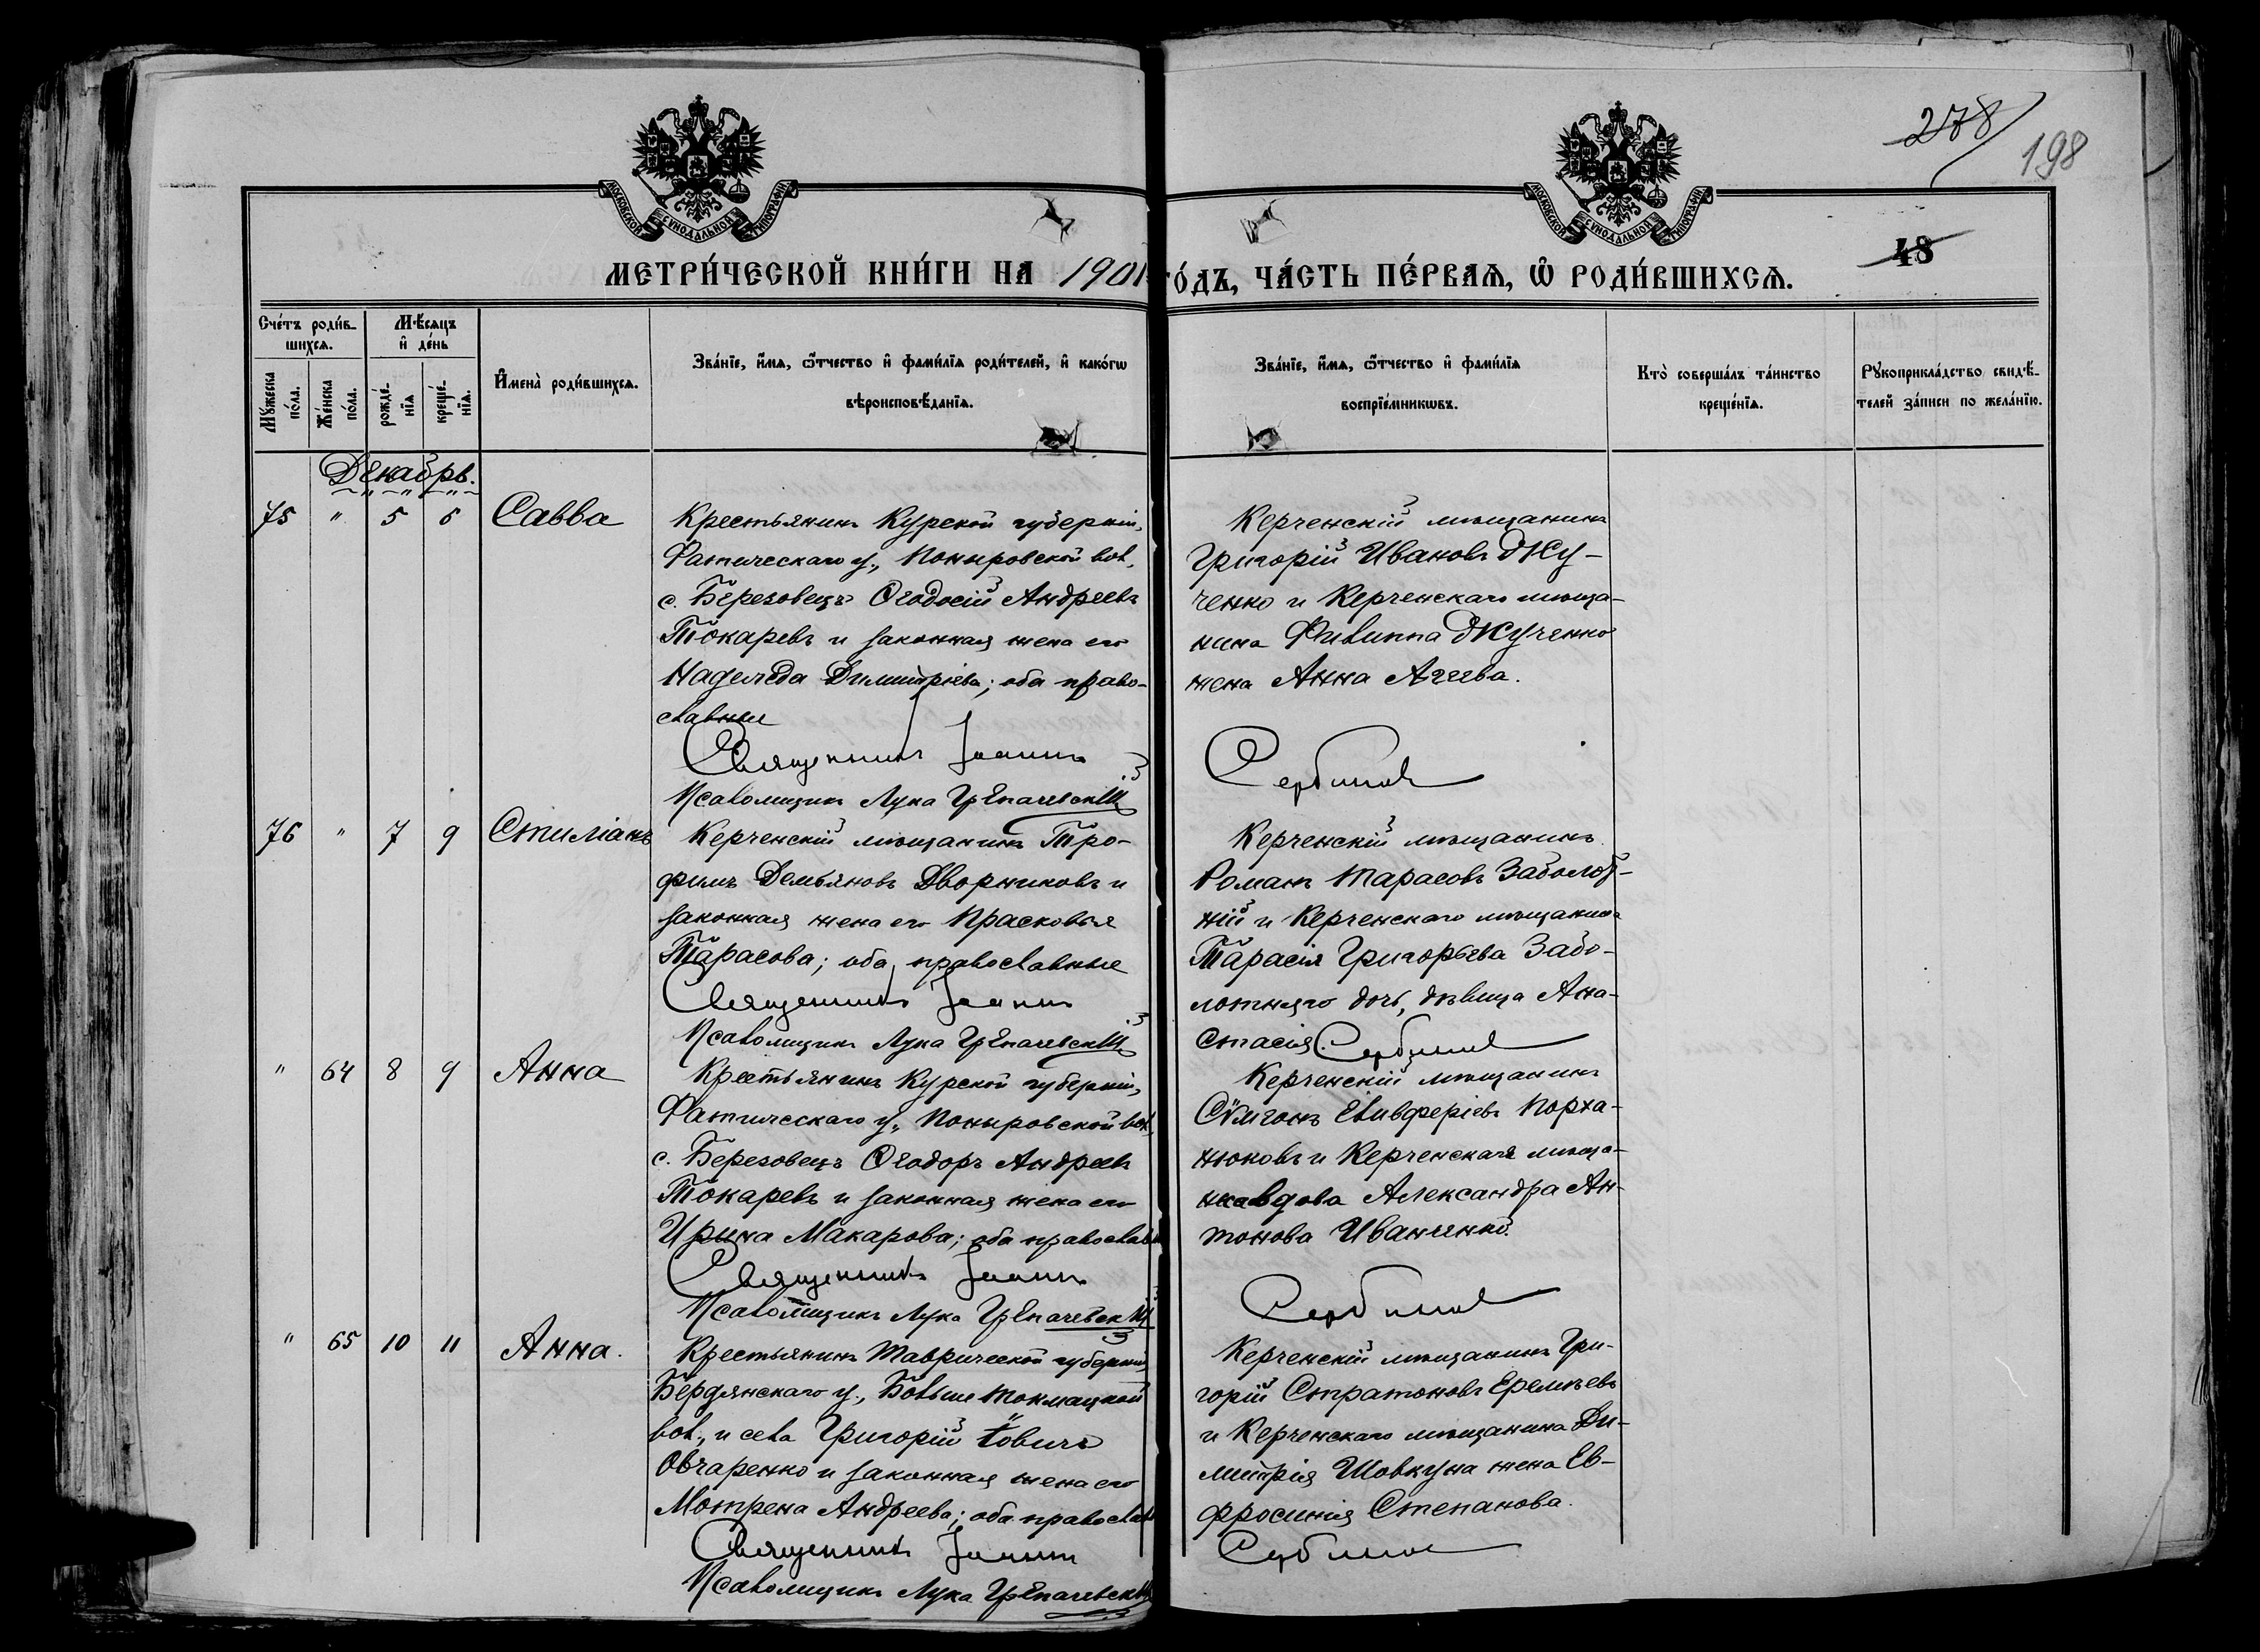 278
198
48
МОСКОВСКОЙ СУНОДАЛЬНОЙ ТИПОГРАФІИ
МОСКОВСКОЙ СУНОДАЛЬНОЙ ТИПОГРАФІИ
МЕТРИ́ЧЕСКОЙ КНИ́ГИ НА 1901 ГО́ДЪ, ЧА́СТЬ ПЕ́РВАѦ, Ѡ҆ РОДИ́ВШИХСѦ.
Сче́тъ роди́в-
шихсѧ.
Мꙋжеска по́ла.
Же́нска по́ла.
Мѣ́сѧцъ
и҆ де́нь
рожде́-
нїѧ
креще́-
нїѧ.
И҆мена̀ роди́вшихсѧ.
Зва́нїе, и҆́мѧ, ѻ҆́тчество и҆ фами́лїѧ роди́телей, и҆ како́гѡ
вѣроисповѣ́данїѧ.
Зва́нїе, и҆́мѧ, ѻ҆́тчество и҆ фами́лїѧ
воспрїе́мникѡвъ.
Кто̀ соверша́лъ та́инство
креще́нїѧ.
Рꙋкоприкла́дство свидѣ́-
телей за́писи по жела́нїю.
Декабрь.
75 " 5 6 Савва
Крестьянинъ Курской губерніи,
Фатическаго у., Поныровской вол.,
с. Березовецъ Ѳеодосій Андреевъ
Токаревъ и законная жена его
Надежда Димитріева; оба право-
славные
Священникъ Іоаннъ
Псаломщикъ Лука
Керченскій мѣщанинъ
Григорій Ивановъ Жу-
ченко и Керченскаго мѣща-
нина Филиппа Жученко
жена Анна Агеева.
Сербиновъ
76 " 7 9 Стиліанъ
Керченскій мѣщанинъ Тро-
фимъ Демьяновъ Дворниковъ и
законная жена его Прасковья
Тарасова; оба православные
Священникъ Іоаннъ
Псаломщикъ Лука
Керченскій мѣщанинъ
Романъ Тарасовъ Заболот-
ній и Керченскаго мѣщанина
Тарасія Григорьева Забо-
лотняго дочь, дѣвица Ана-
стасія. Сербиновъ
" 64 8 9 Анна
Крестьянинъ Курской губерніи,
Фатическаго у., Поныровской вол.,
с. Березовецъ Ѳеодоръ Андреевъ
Токаревъ и законная жена его
Ирина Макарова; оба православн
Священникъ Іоаннъ
Псаломщикъ Лука
Керченскій мѣщанинъ
Сѵмеонъ Елевферіевъ Порха-
нюковъ и Керченская мѣща-
нка вдова Александра Ан-
тонова Иванченко.
Сербиновъ
" 65 10 11 Анна.
Крестьянинъ Таврической губерніи,
Бердянскаго у., Больше Токмацкой
вол., и села Григорій Іовичъ
Овчаренко и законная жена его
Мотрена Андреева; оба православ
Священникъ Іоаннъ
Псаломщикъ Лука
Керченскій мѣщанинъ Гри-
горій Стратоновъ Еремѣевъ
и Керченскаго мѣщанина Ди-
митрія Шовкуна жена Ев-
фросинія Степанова.
Сербиновъ